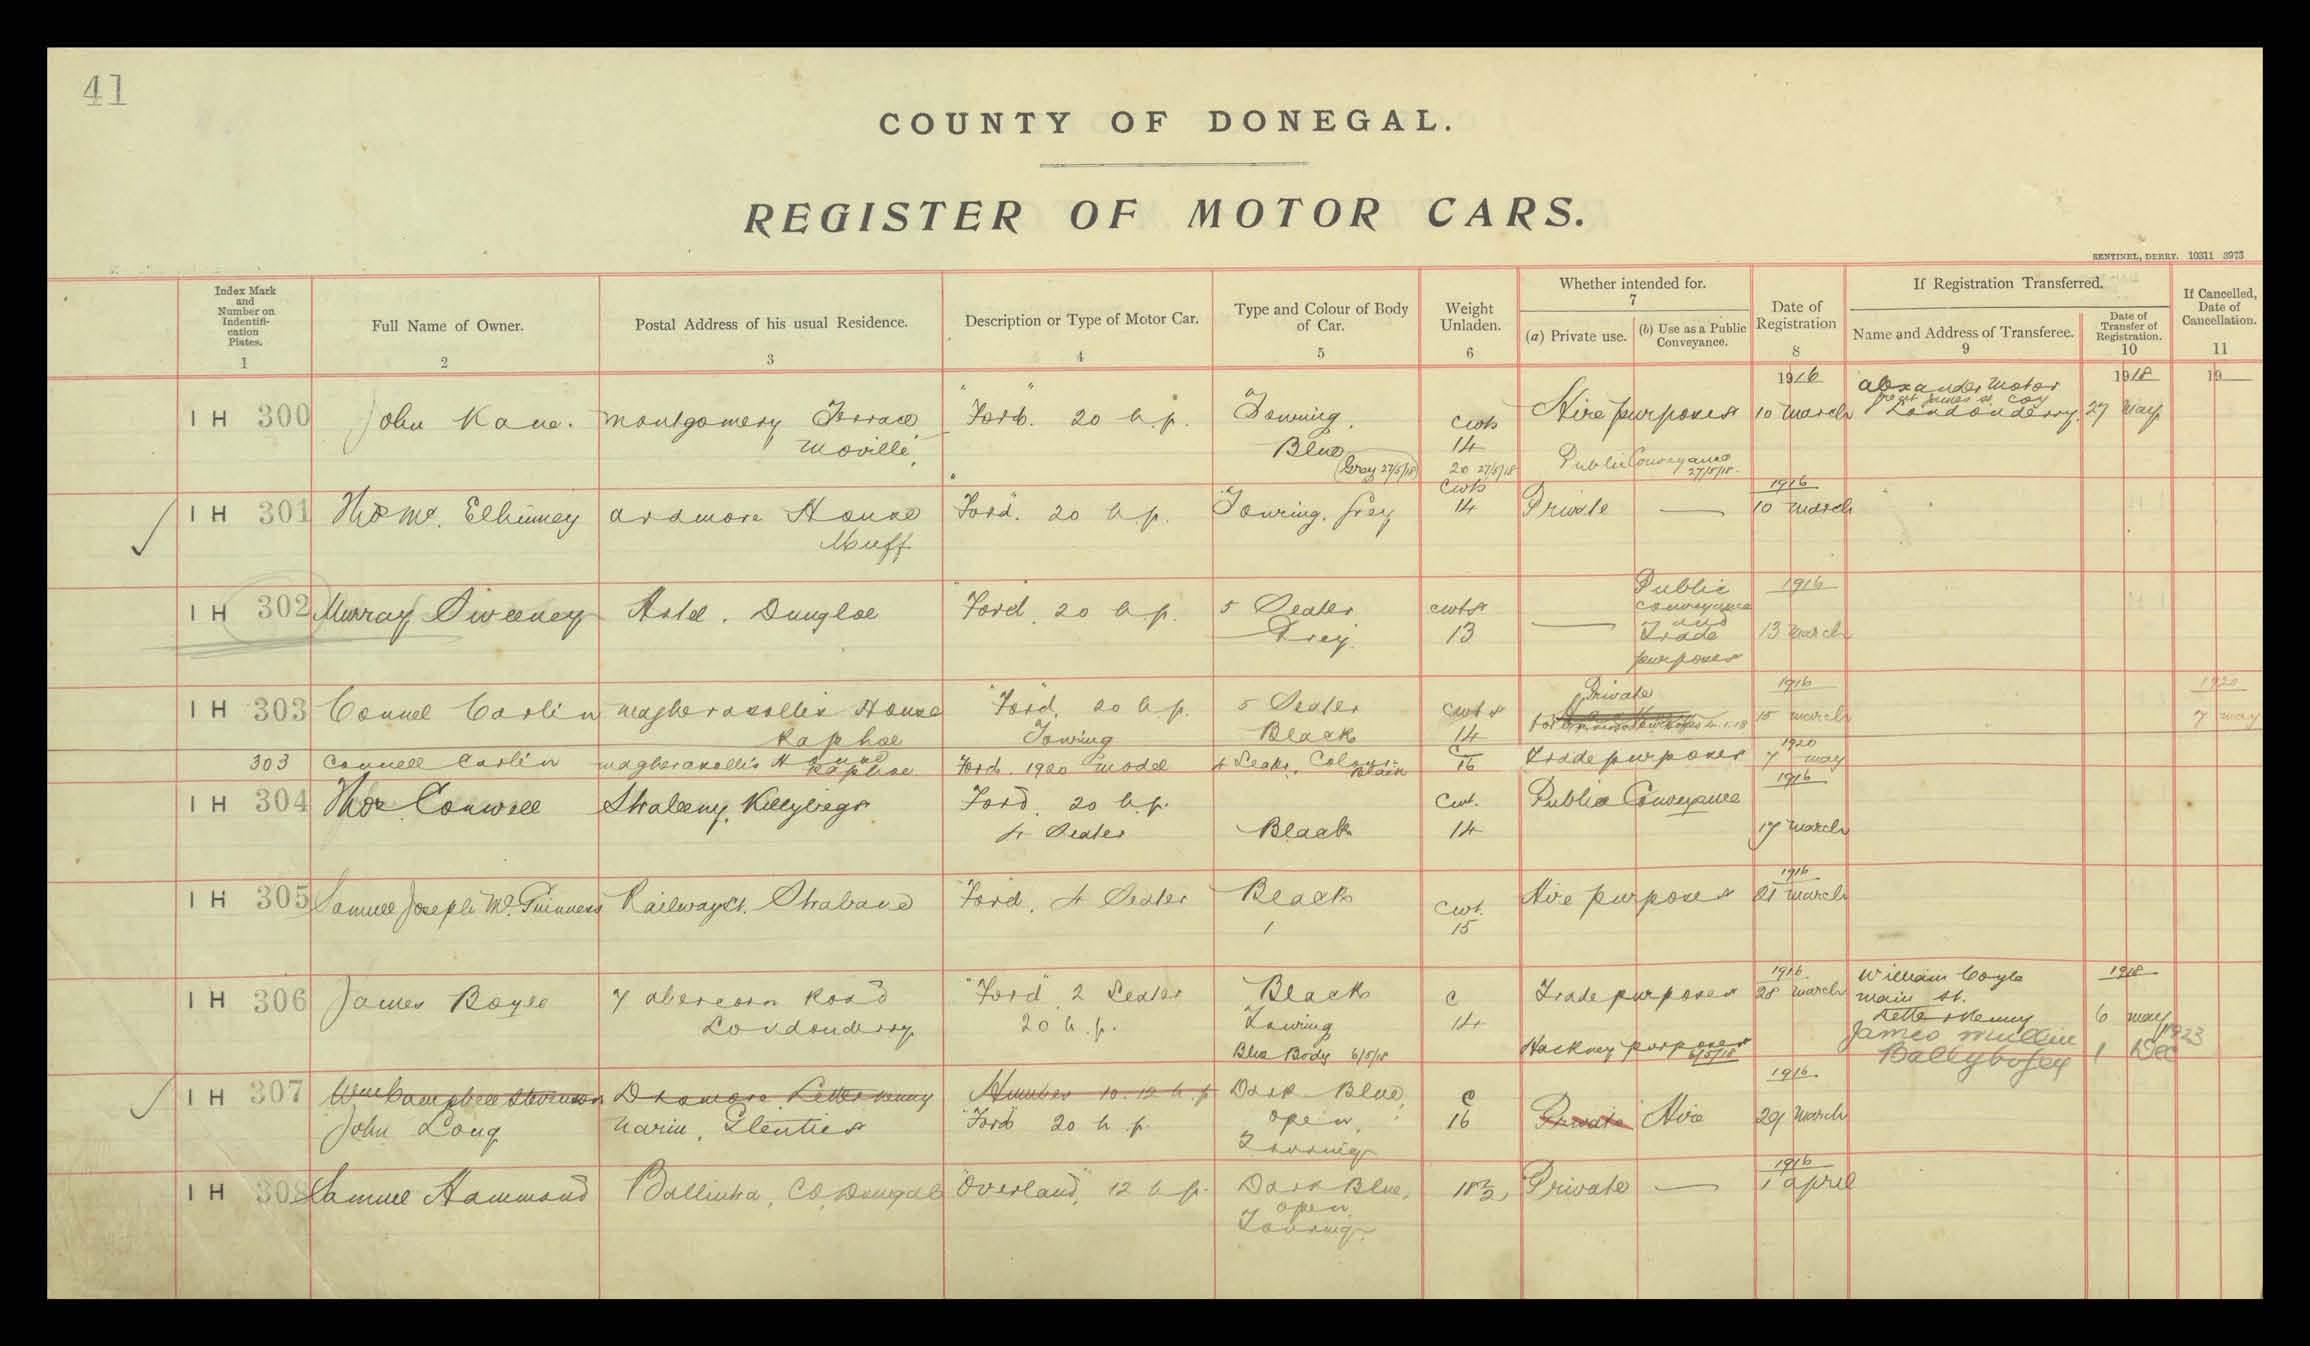 41
COUNTY OF DONEGAL.
REGISTER OF MOTOR CARS.
SENTINEL, DERRY. 10311 3973
Index Mark and Number on Indentifi-cation Plates.
1
Full Name of Owner.
2
Postal Address of his usual Residence.
3
Description or Type of Motor Car.
4
Type and Colour of Body of Car.
5
Weight Unladen.
6
Whether intended for.
7
(a) Private use.
(b) Use as a Public Conveyance.
Date of Registration
8
If Registration Transferred.
Name and Address of Transferee.
9
Date of Transfer of Registration.
10
If Cancelled, Date of Cancellation.
11
1916
1918
19
IH 300 John Kane. Montgomery Terrace "Ford". 20 h.p. Touring. Cwts Hire purposes 10 March Alexander Motor Coy 27 May
Moville, Blue 14 Great James St. Londonderry.
Grey 27/5/18 20 27/5/18 Public Conveyance 27/5/18.
1916
IH 301 Thos Mc. Elhinney Ardmore House "Ford". 20 h.p. Touring. Grey Cwts 14 Private — 10 March
Muff
1916
IH 302 Murray Sweeney Hotel, Dungloe "Ford". 20 h.p. 5 Seater cwts Public conveyance and Trade purposes 13 March
Grey 13
1916 1920
IH 303 Connell Carlin Magheracollis House "Ford". 20 h.p. 5 Seater cwts Private 15 March 7 May
Raphoe Touring Black 14
1920
303 Connell Carlin Magheracollis House Raphoe Ford. 1920 model 4 Seats, Colour Black C 16 Trade purposes 7 May
1916
IH 304 Thos Conwell Straleeny, Killybegs Ford. 20 h.p. Cwt. Public Conveyance
4 Seater Black 14 17 March
1916
IH 305 Samuel Joseph Mc. Guinness Railway St. Strabane "Ford". 4 Seater Black Cwt. 15 Hire purposes 21 March
1916 1918
IH 306 James Boyle 7 Abercorn Road "Ford" 2 Seater Black C Trade purposes 28 March William Coyle
Londonderry 20 h.p. Touring 14 Main St. Letterkenny 6 May
Blue Body 6/5/18 Hackney purposes 6/5/18 James Mullin 1923
Ballybofey 1 Dec
1916
IH 307 Wm Campbell Stevenson Dromore Letterkenny Humber 10-12 h.p. Dark Blue, C
John Long Narin, Glenties "Ford" 20 h.p. open, 16 Private Hire 29 March
Touring
1916
IH 308 Samuel Hammond Ballintra, Co. Donegal "Overland", 12 h.p. Dark Blue, 18½, Private — 1 April
open
Touring.